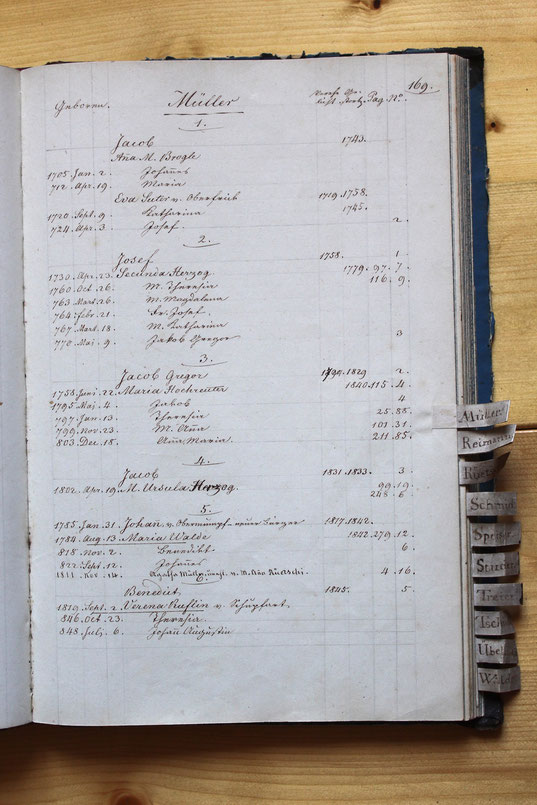 169.
Geboren. Müller Pag. No.
1.
Jacob 1743.
Ana M. Brogle
1705. Jan. 2. Johanes
712. Apr. 19. Maria
Eva Suter v. Oberfrick 1719. 1758.
1720. Sept. 9. Katharina 1745.
724. Apr. 3. Josef. 2.
2.
Josef 1758. 1
1730. Apr. 23. Secunda Herzog. 1779. 97. 7.
1760. Oct. 26. M. Theresia 116. 9.
763 Mart. 26. M. Magdalena
764. Febr. 21. Fr. Josef.
767. Mart. 18. M. Katharina
770. Mai. 9. Jakob Gregor 3
3.
Jacob Gregor 1829 2.
1758. Juni. 22. Maria Hochreuter 1840. 115. 4.
1795. Mai. 4. Jakob 4
797. Jan. 13. Theresia 25. 88.
799. Nov. 23. M. Ana 101. 31.
803. Dec. 18. Ana Maria. 211. 85.
4.
Jacob 1831. 1833. 3.
1802. Apr. 19. M. Ursula Herzog. 99. 19.
248. 6.
5.
1785. Jan. 31. Johan v. Obermumpf neuer Bürger 1817. 1842.
1784. Aug. 13. Maria Walde 1842. 279. 12.
818. Nov. 2. Benedikt 6.
822. Sept. 12. Johanes
1811. Nov. 14. Agatha 4. 16.
6.
Benedict, 1845. 5.
1819. Sept. 2. Verena Ruflin v. Schupfart.
846. Oct. 23. Theresia.
848. Juli. 6. Johan Augustin
Müller
Schmid
Treier